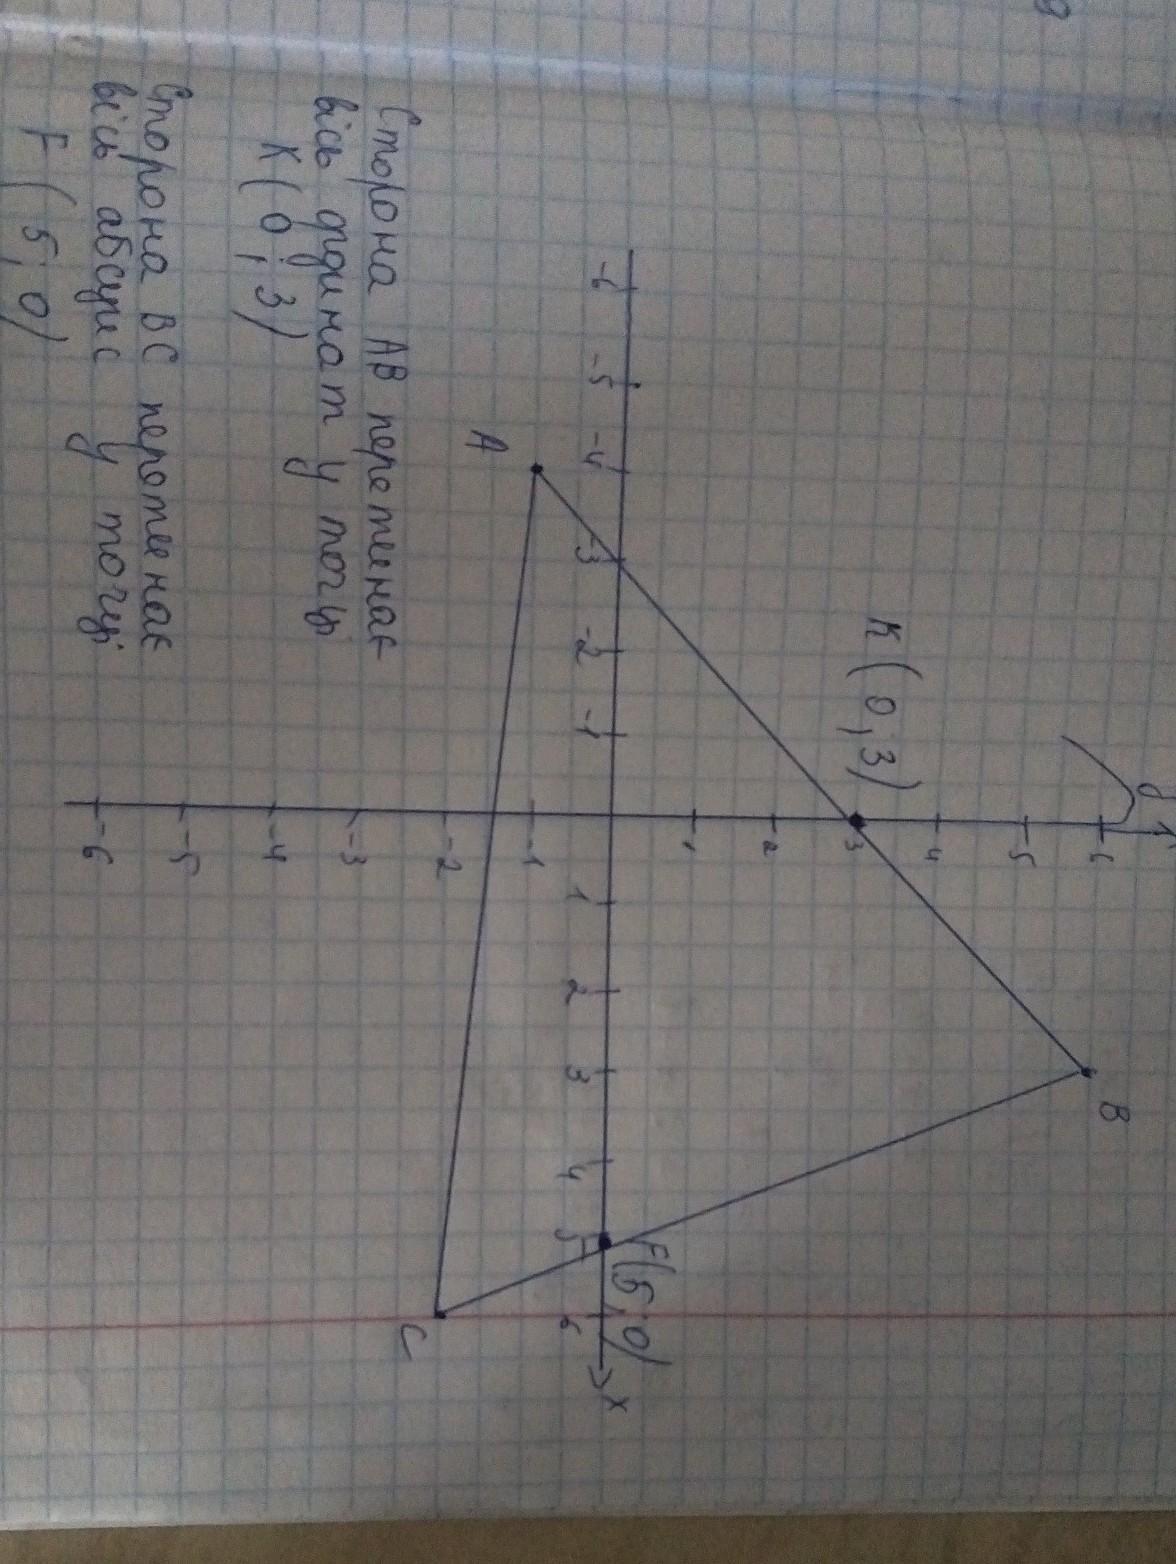 y
6
5
4
K(0;3)
3
2
1
-6 -5 -4 -3 -2 -1 1 2 3 4 5 6 x
F(5;0)
-1
-2
-3
-4
-5
-6
A
B
C
Сторона AB перетинає
вісь ординат у точці
K(0;3)
Сторона BC перетинає
вісь абсцис у точці
F(5;0)